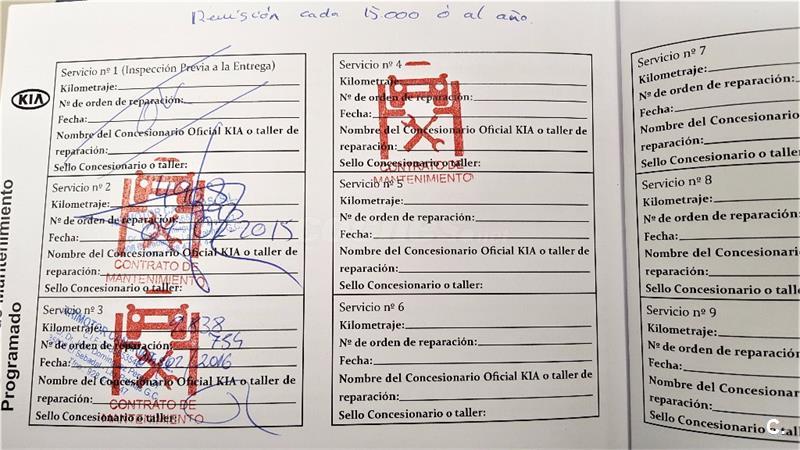 Revisión cada 15.000 ó al año.
KIA
Programado
Servicio nº 1 (Inspección Previa a la Entrega)
Kilometraje:
Nº de orden de reparación:
Fecha:
Nombre del Concesionario Oficial KIA o taller de
reparación:
Sello Concesionario o taller:
Servicio nº 2
Kilometraje:
Nº de orden de reparación:
Fecha: 2015
Nombre del Concesionario Oficial KIA o taller de
reparación:
Sello Concesionario o taller:
CONTRATO DE
MANTENIMIENTO
Servicio nº 3
Kilometraje: 9.838
Nº de orden de reparación: 754
Fecha: 02 2016
Nombre del Concesionario Oficial KIA o taller de
reparación:
CONTRATO DE
MANTENIMIENTO
Sello Concesionario o taller:
Servicio nº 4
Kilometraje:
Nº de orden de reparación:
Fecha:
Nombre del Concesionario Oficial KIA o taller de
reparación:
Sello Concesionario o taller:
CONTRATO DE
MANTENIMIENTO
Servicio nº 5
Kilometraje:
Nº de orden de reparación:
Fecha:
Nombre del Concesionario Oficial KIA o taller de
reparación:
Sello Concesionario o taller:
Servicio nº 6
Kilometraje:
Nº de orden de reparación:
Fecha:
Nombre del Concesionario Oficial KIA o taller de
reparación:
Sello Concesionario o taller:
Servicio nº 7
Kilometraje:
Nº de orden de reparación:
Fecha:
Nombre del Concesionario
reparación:
Sello Concesionario o tall
Servicio nº 8
Kilometraje:
Nº de orden de reparación:
Fecha:
Nombre del Concesionario
reparación:
Sello Concesionario o tall
Servicio nº 9
Kilometraje:
Nº de orden de reparación:
Fecha:
Nombre del Concesionario
reparación:
Sello Concesionario o tall